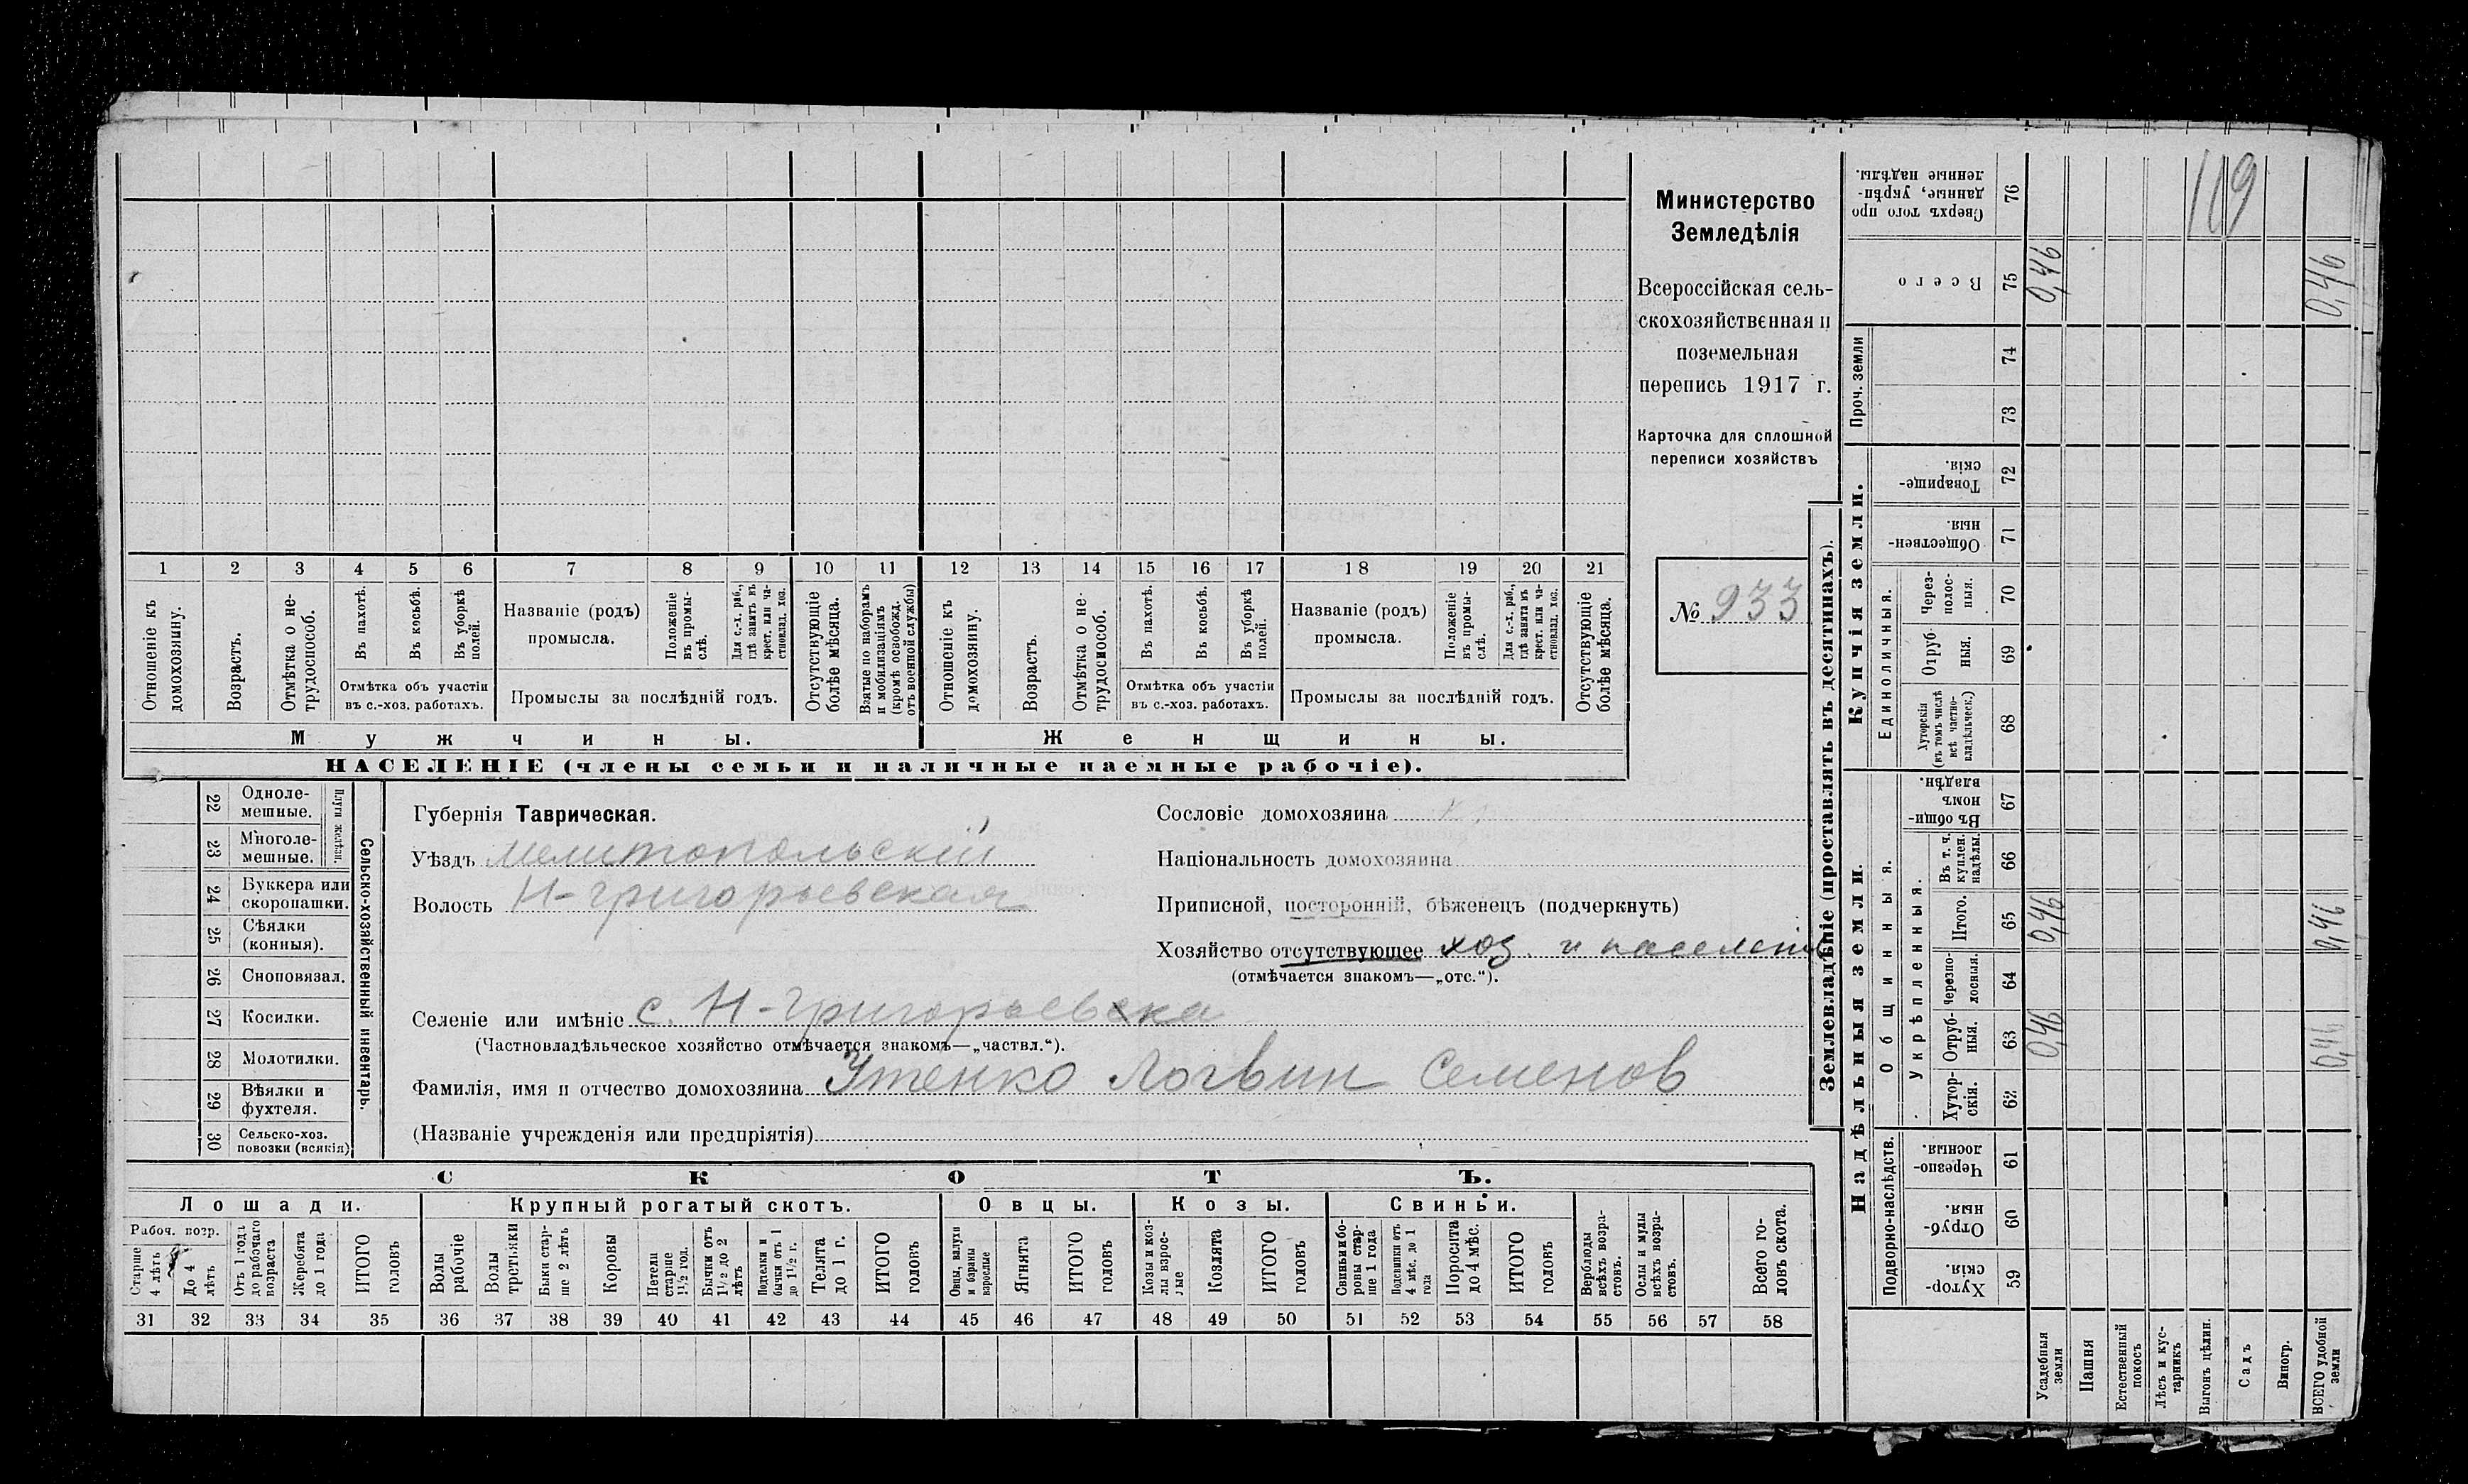 Министерство
Земледѣлія
Всероссійская сель-
скохозяйственная и
поземельная
перепись 1917 г.
Карточка для сплошной
переписи хозяйствъ
№ 933
1 2 3 4 5 6 7 8 9 10 11 12 13 14 15 16 17 18 19 20 21
Отношеніе къ домохозяину.
Возрастъ.
Отмѣтка о не-трудоспособ.
Въ пахотѣ.
Въ косьбѣ.
Въ уборкѣ полей.
Отмѣтка объ участіи
въ с.-хоз. работахъ.
Названіе (родъ)
промысла.
Положеніе въ промы-слѣ.
Для с.-х. раб., гдѣ занятъ въ крест. или ча-стновлад. хоз.
Промыслы за послѣдній годъ.
Отсутствующіе болѣе мѣсяца.
Взятые по наборамъ и мобилизаціямъ (кромѣ освобожд. отъ военной службы)
Отношеніе къ домохозяину.
Возрастъ.
Отмѣтка о не-трудоспособ.
Въ пахотѣ.
Въ косьбѣ.
Въ уборкѣ полей.
Отмѣтка объ участіи
въ с.-хоз. работахъ.
Названіе (родъ)
промысла.
Положеніе въ промы-слѣ.
Для с.-х. раб., гдѣ занята въ крест. или ча-стновлад. хоз.
Промыслы за послѣдній годъ.
Отсутствующіе болѣе мѣсяца.
Мужчины.
Женщины.
НАСЕЛЕНІЕ (члены семьи и наличные наемные рабочіе).
22 Однолемешные.
23 Многолемешные.
Плуги желѣзн.
24 Буккера или скоропашки.
25 Сѣялки (конныя).
26 Сноповязал.
27 Косилки.
28 Молотилки.
29 Вѣялки и фухтеля.
30 Сельско-хоз. повозки (всякія)
Сельско-хозяйственный инвентарь.
Губернія Таврическая.
Уѣздъ Мелитопольскій
Волость Н-Григорьевская
Сословіе домохозяина
Національность домохозяина
Приписной, посторонній, бѣженецъ (подчеркнуть)
Хозяйство отсутствующее хоз. и населені
(отмѣчается знакомъ—„отс.“).
Селеніе или имѣніе с. Н-Григорьевка
(Частновладѣльческое хозяйство отмѣчается знакомъ—„частвл.“).
Фамилія, имя и отчество домохозяина Утенко Логвин Семенов
(Названіе учрежденія или предпріятія)
СКОТЪ.
Лошади.
Крупный рогатый скотъ.
Овцы.
Козы.
Свиньи.
Рабоч. возр.
Старше 4 лѣтъ
До 4 лѣтъ
Отъ 1 года до рабочаго возраста
Жеребята до 1 года
ИТОГО головъ
Волы рабочіе
Волы третьяки
Быки стар-ше 2 лѣтъ
Коровы
Нетели старше 1½ год.
Бычки отъ 1½ до 2 лѣтъ
Подтелки и бычки отъ 1 до 1½ г.
Телята до 1 г.
ИТОГО головъ
Овцы, валухи и бараны взрослые
Ягнята
ИТОГО головъ
Козы и коз-лы взрос-лые
Козлята
ИТОГО головъ
Свиньи и бо-ровы стар-ше 1 года
Подсвинки отъ 4 мѣс. до 1 года
Поросята до 4 мѣс.
ИТОГО головъ
Верблюды всѣхъ возра-стовъ.
Ослы и мулы всѣхъ возра-стовъ.
Всего го-ловъ скота.
31 32 33 34 35 36 37 38 39 40 41 42 43 44 45 46 47 48 49 50 51 52 53 54 55 56 57 58
Землевладѣніе (проставлять въ десятинахъ).
119
Сверхъ того про-данные, укрѣп-ленные надѣлы. 76
Всего 75 0,46 0,46
Проч. земли 74 73
Купчія земли.
Товарище-скія. 72
Обществен-ныя. 71
Единоличныя.
Через-полос-ныя. 70
Отруб-ныя. 69
Хуторскія (въ томъ числѣ всѣ частно-владѣльческ.) 68
Надѣльныя земли.
Общинныя.
Въ общин-номъ владѣн. 67
Укрѣпленныя.
Въ т. ч. куплен. надѣлы. 66
Итого. 65 0,46 0,46
Черезпо-лосныя. 64
Отруб-ныя. 63 0,46 0,46
Хутор-скія. 62
Подворно-наслѣдств.
Черезпо-лосныя. 61
Отруб-ныя. 60
Хутор-скія. 59
Усадебныя земли
Пашня
Естественный покосъ
Лѣсъ и кус-тарникъ
Выгонъ цѣлин.
Садъ
Виногр.
ВСЕГО удобной земли